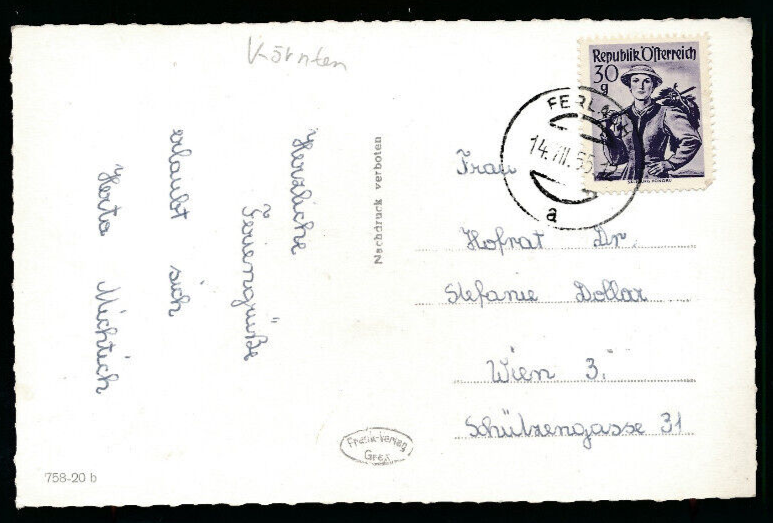 Kärnten
Herzliche
Feriengrüße
erlaubt sich
Herta
Nachdruck verboten
Republik Österreich
30
g
FERLA
a
Frau
Hofrat Dr.
Stefanie Dollar
Wien 3.
Schützengasse 31
Verlag
Graz
758-20 b